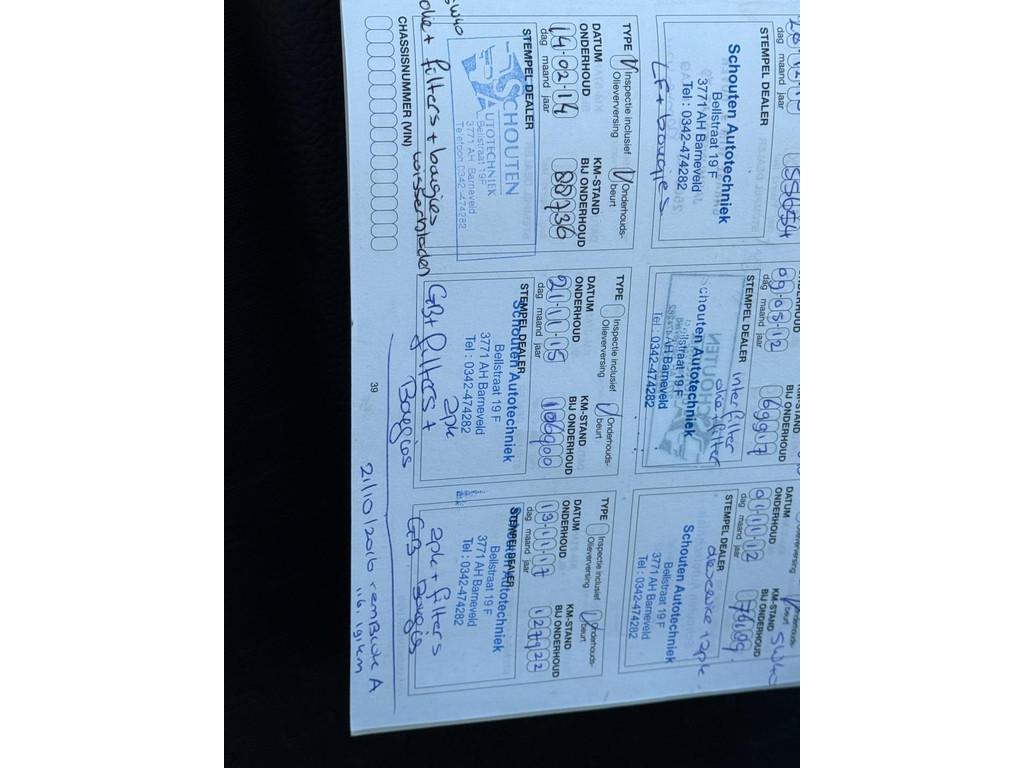 Schouten Autotechniek
Bellstraat 19 F
3771 AH Barneveld
Tel : 0342-474282
LF + bougies
STEMPEL DEALER
dag maand jaar
09-03-12
69917
ONDERHOUD
BIJ ONDERHOUD
dag maand jaar
STEMPEL DEALER
interfilter
olie + filter
Schouten Autotechniek
Bellstraat 19 F
3771 AH Barneveld
Tel : 0342-474282
Onderhouds-
beurt
5W40
DATUM
ONDERHOUD
KM-STAND
BIJ ONDERHOUD
01-11-12
76109
dag maand jaar
STEMPEL DEALER
+ apk
Schouten Autotechniek
Bellstraat 19 F
3771 AH Barneveld
Tel : 0342-474282
TYPE
Inspectie inclusief
Olieverversing
Onderhouds-
beurt
DATUM
ONDERHOUD
KM-STAND
BIJ ONDERHOUD
14-02-14
88736
dag maand jaar
STEMPEL DEALER
SCHOUTEN
AUTOTECHNIEK
Bellstraat 19F
3771 AH Barneveld
Telefoon 0342-474282
5W40
olie + filters + bougies
wisserbladen
TYPE
Inspectie inclusief
Olieverversing
Onderhouds-
beurt
DATUM
ONDERHOUD
KM-STAND
BIJ ONDERHOUD
21-11-15
106900
dag maand jaar
STEMPEL DEALER
Schouten Autotechniek
Bellstraat 19 F
3771 AH Barneveld
Tel : 0342-474282
apk
GB + filters +
Bougies
TYPE
Inspectie inclusief
Olieverversing
Onderhouds-
beurt
DATUM
ONDERHOUD
KM-STAND
BIJ ONDERHOUD
13-11-17
127922
dag maand jaar
STEMPEL DEALER
Schouten Autotechniek
Bellstraat 19 F
3771 AH Barneveld
Tel : 0342-474282
apk + filters
GB Bougies
CHASSISNUMMER (VIN)
39
21/10/2016 A
116.191 km